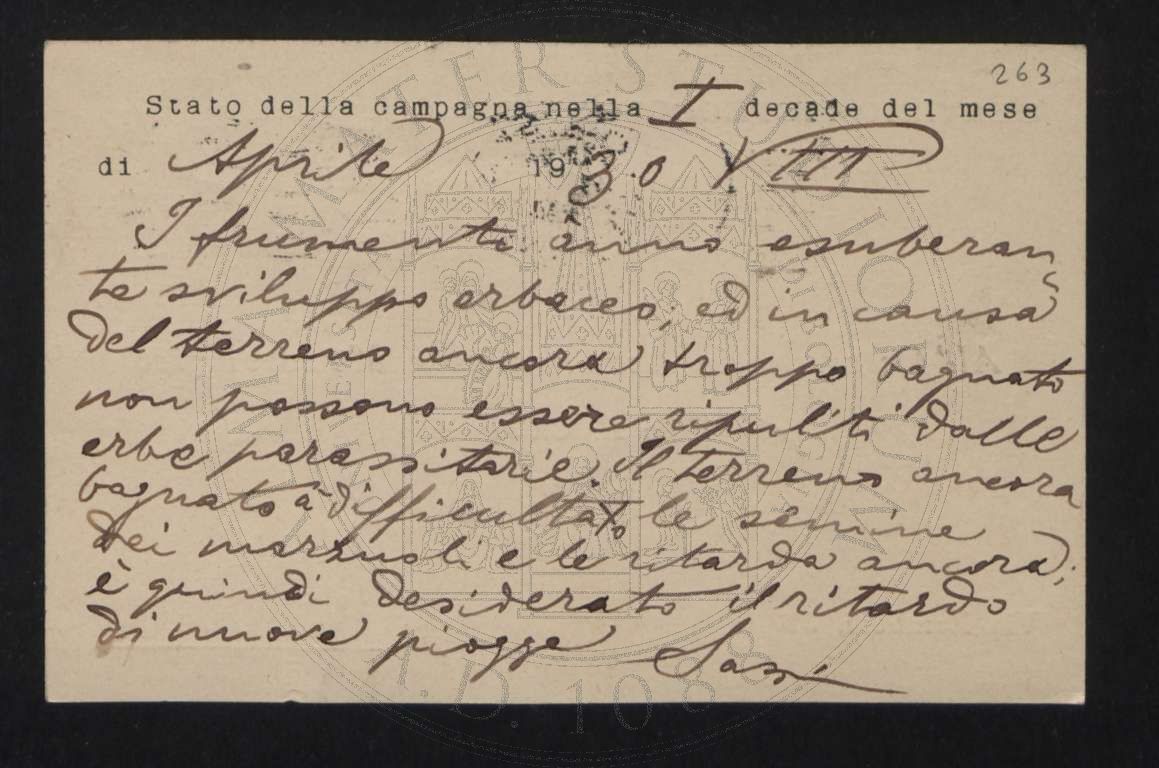 263
Stato della campagna nella I decade del mese
di Aprile 1930 VIII
I frumenti anno esuberan-
te sviluppo erbaceo, ed in causa
del terreno ancora troppo bagnato
non possono essere ripuliti dalle
erbe parassitarie. Il terreno ancora
bagnato à difficultato le semine
dei marzuoli e le ritarda ancora;
è quindi desiderato il ritardo
di nuove piogge Sassi
ALMA MATER STUDIORUM
A.D. 1088